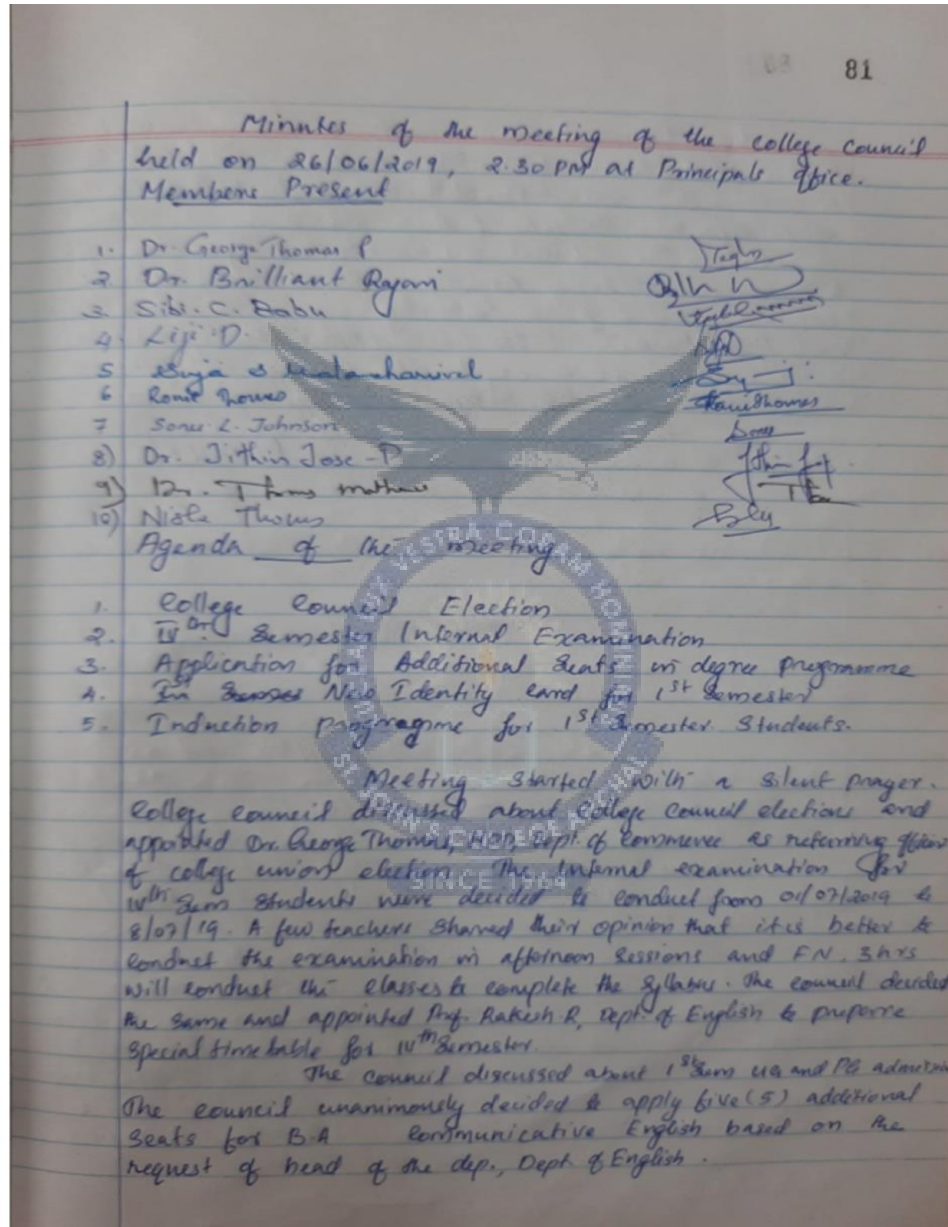 81
Minutes of the meeting of the college council
held on 26/06/2019, 2.30 PM at Principals office.
Members Present
1. Dr. George Thomas P
2. Dr. Brilliant Rajan
3. Sibi. C. Babu
4. Liji. D.
5 Suja S
6 Ronie Thomas
7 Sonu L. Johnson
8) Dr. Jithin Jose - P
9) Dr. Thomas Mathew
10) Thomas
Agenda of the meeting
1. College Council Election
2. IVth Semester Internal Examination
3. Application for Additional Seats in degree programme
4. New Identity card for 1st Semester
5. Induction programme for 1st Semester Students.
Meeting started with a silent prayer.
College council discussed about College Council elections and
appointed Dr. George Thomas, HOD, Dept. of Commerce as returning officer
of college union election. The internal examination for
IVth Sem students were decided to conduct from 01/07/2019 to
8/07/19. A few teachers shared their opinion that it is better to
conduct the examination in afternoon sessions and F.N. 3hrs
will conduct the classes to complete the syllabus. The council decided
the same and appointed Prof. Rakesh R, Dept. of English to prepare
special time table for IVth Semester.
The council discussed about 1st Sem UG and PG admission
The council unanimously decided to apply five (5) additional
seats for B.A Communicative English based on the
request of head of the dep., Dept of English.
VESTRA CORAM HOMINIBUS
ST. JOHN'S COLLEGE ANCHAL
SINCE 1964